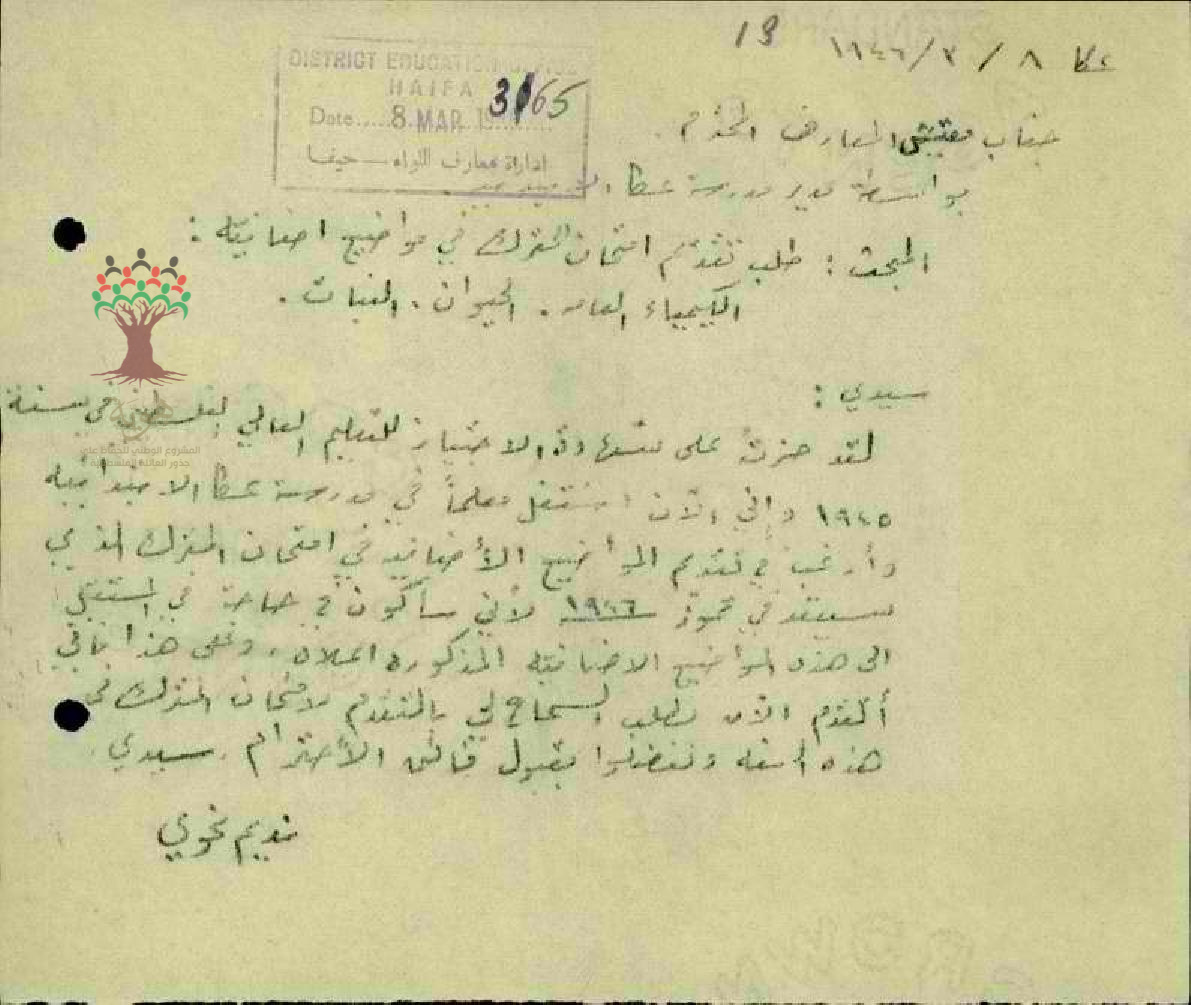 13
عكا ٨ / ٣ / ١٩٤٦
DISTRICT EDUCATION OFFICE
HAIFA
3165
Date..... 8 MAR 19.........
ادارة معارف اللواء — حيفا
جناب مفتش المعارف المحترم .
بواسطة مدير مدرسة عكا الابتدائية
المبحث : طلب تقديم امتحان المترك في مواضيع اضافية :
الكيمياء العامه . الحيوان . النبات .
سيدي :
لقد حزت على شهادة الاجتياز للتعليم العالي الفلسطيني في سنة
١٩٤٥ وإني الآن اشتغل معلماً في مدرسة عكا الابتدائيه
وأرغب في تقديم المواضيع الأضافيه في امتحان المترك الذي
سيعقد في تموز ١٩٤٦ لأني سأكون في حاجة في المستقبل
الى هذه المواضيع الاضافيه المذكوره اعلاه . وعلى هذا فاني
أتقدم الآن بطلب السماح لي بالتقدم لامتحان المترك في
هذه السنه وتفضلوا بقبول فائق الأحترام . سيدي .
نديم نحوي
المشروع الوطني للحفاظ على
جذور العائلة الفلسطينية